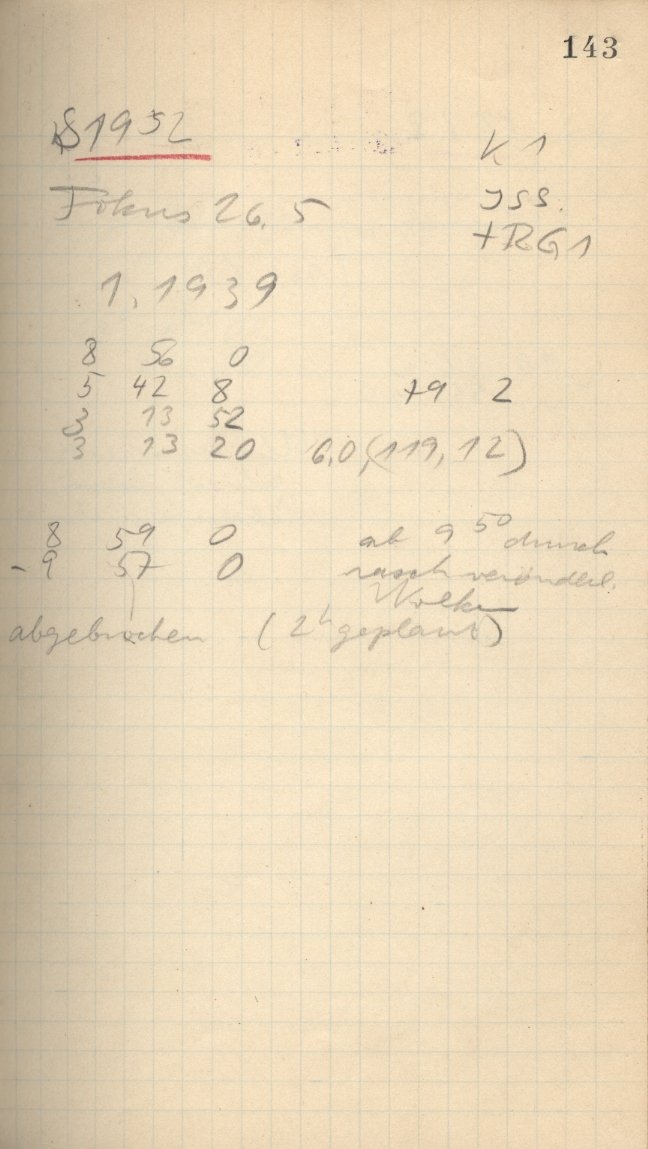 143
S1952
K 1
Fokus 26,5
JSS.
+RG1
1,1939
8 56 0
5 42 8 +9 2
3 13 52
3 13 20 6,0(119,12)
8 59 0 ab 9 50 durch
- 9 57 0 rasch veränderl.
Wolken
abgebrochen (2h geplant)